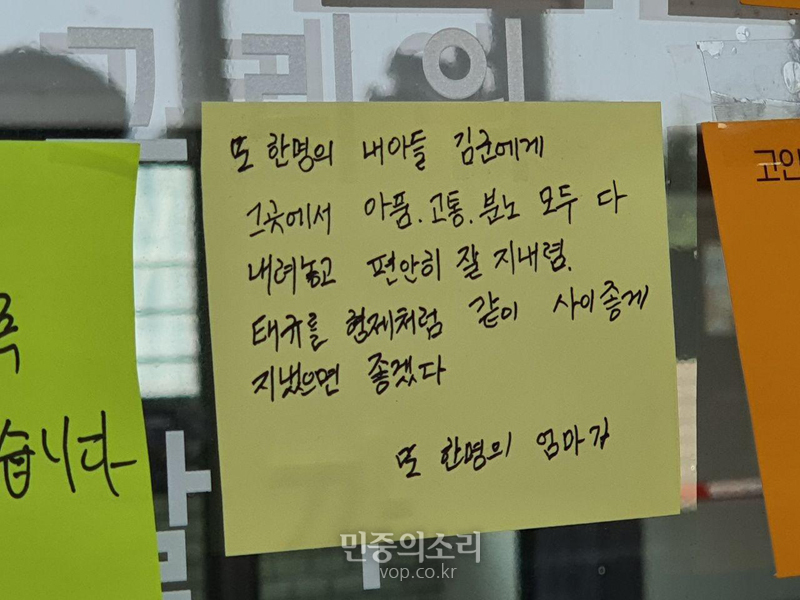 또 한명의 내아들 김군에게
그곳에서 아픔.고통.분노 모두 다
내려놓고 편안히 잘 지내렴.
태규를 형제처럼 같이 사이좋게
지냈으면 좋겠다
또 한명의 엄마가
습니다
고인
민중의소리
vop.co.kr